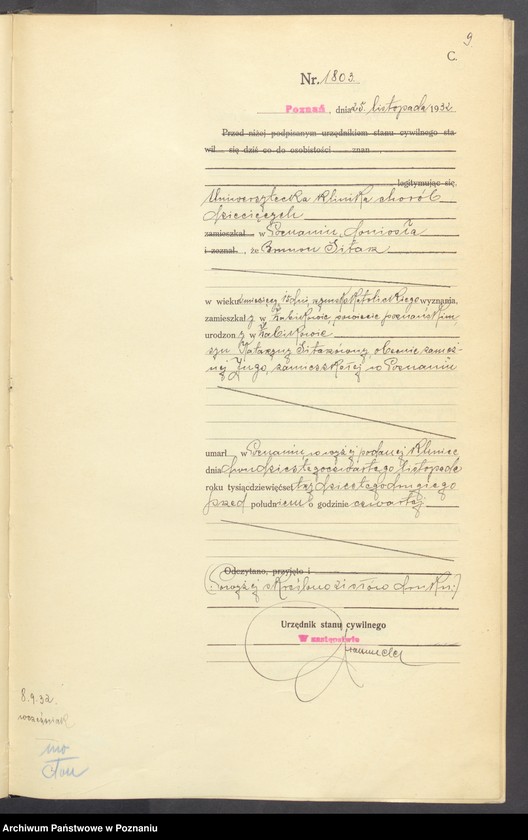 9
C.
Nr. 1803.
Poznań, dnia 25. listopada 1932
Przed niżej podpisanym urzędnikiem stanu cywilnego sta
wił się dziś co do osobistości znan
legitymując się,
Uniwersytecka klinika chorób
dziecięcych
zamieszkał w Poznaniu, doniosła
i zeznał , że Zenon Sitarz
w wieku dni, rzymsko katolickiego wyznania,
zamieszkały w Żabikowie, powiecie poznańskim,
urodzony w Żabikowie
syn Katarzyny obecnie zamęż-
nej zamieszkałej w Poznaniu
umarł w Poznaniu w wyżej podanej klinice
dnia dwudziestego czwartego listopada
roku tysiącdziewięćset trzydziestego drugiego
przed południem o godzinie czwartej
Odczytano, przyjęto i
(Powyżej skreślono słów druku.)
Urzędnik stanu cywilnego
W zastępstwie
8.9.32.
Archiwum Państwowe w Poznaniu